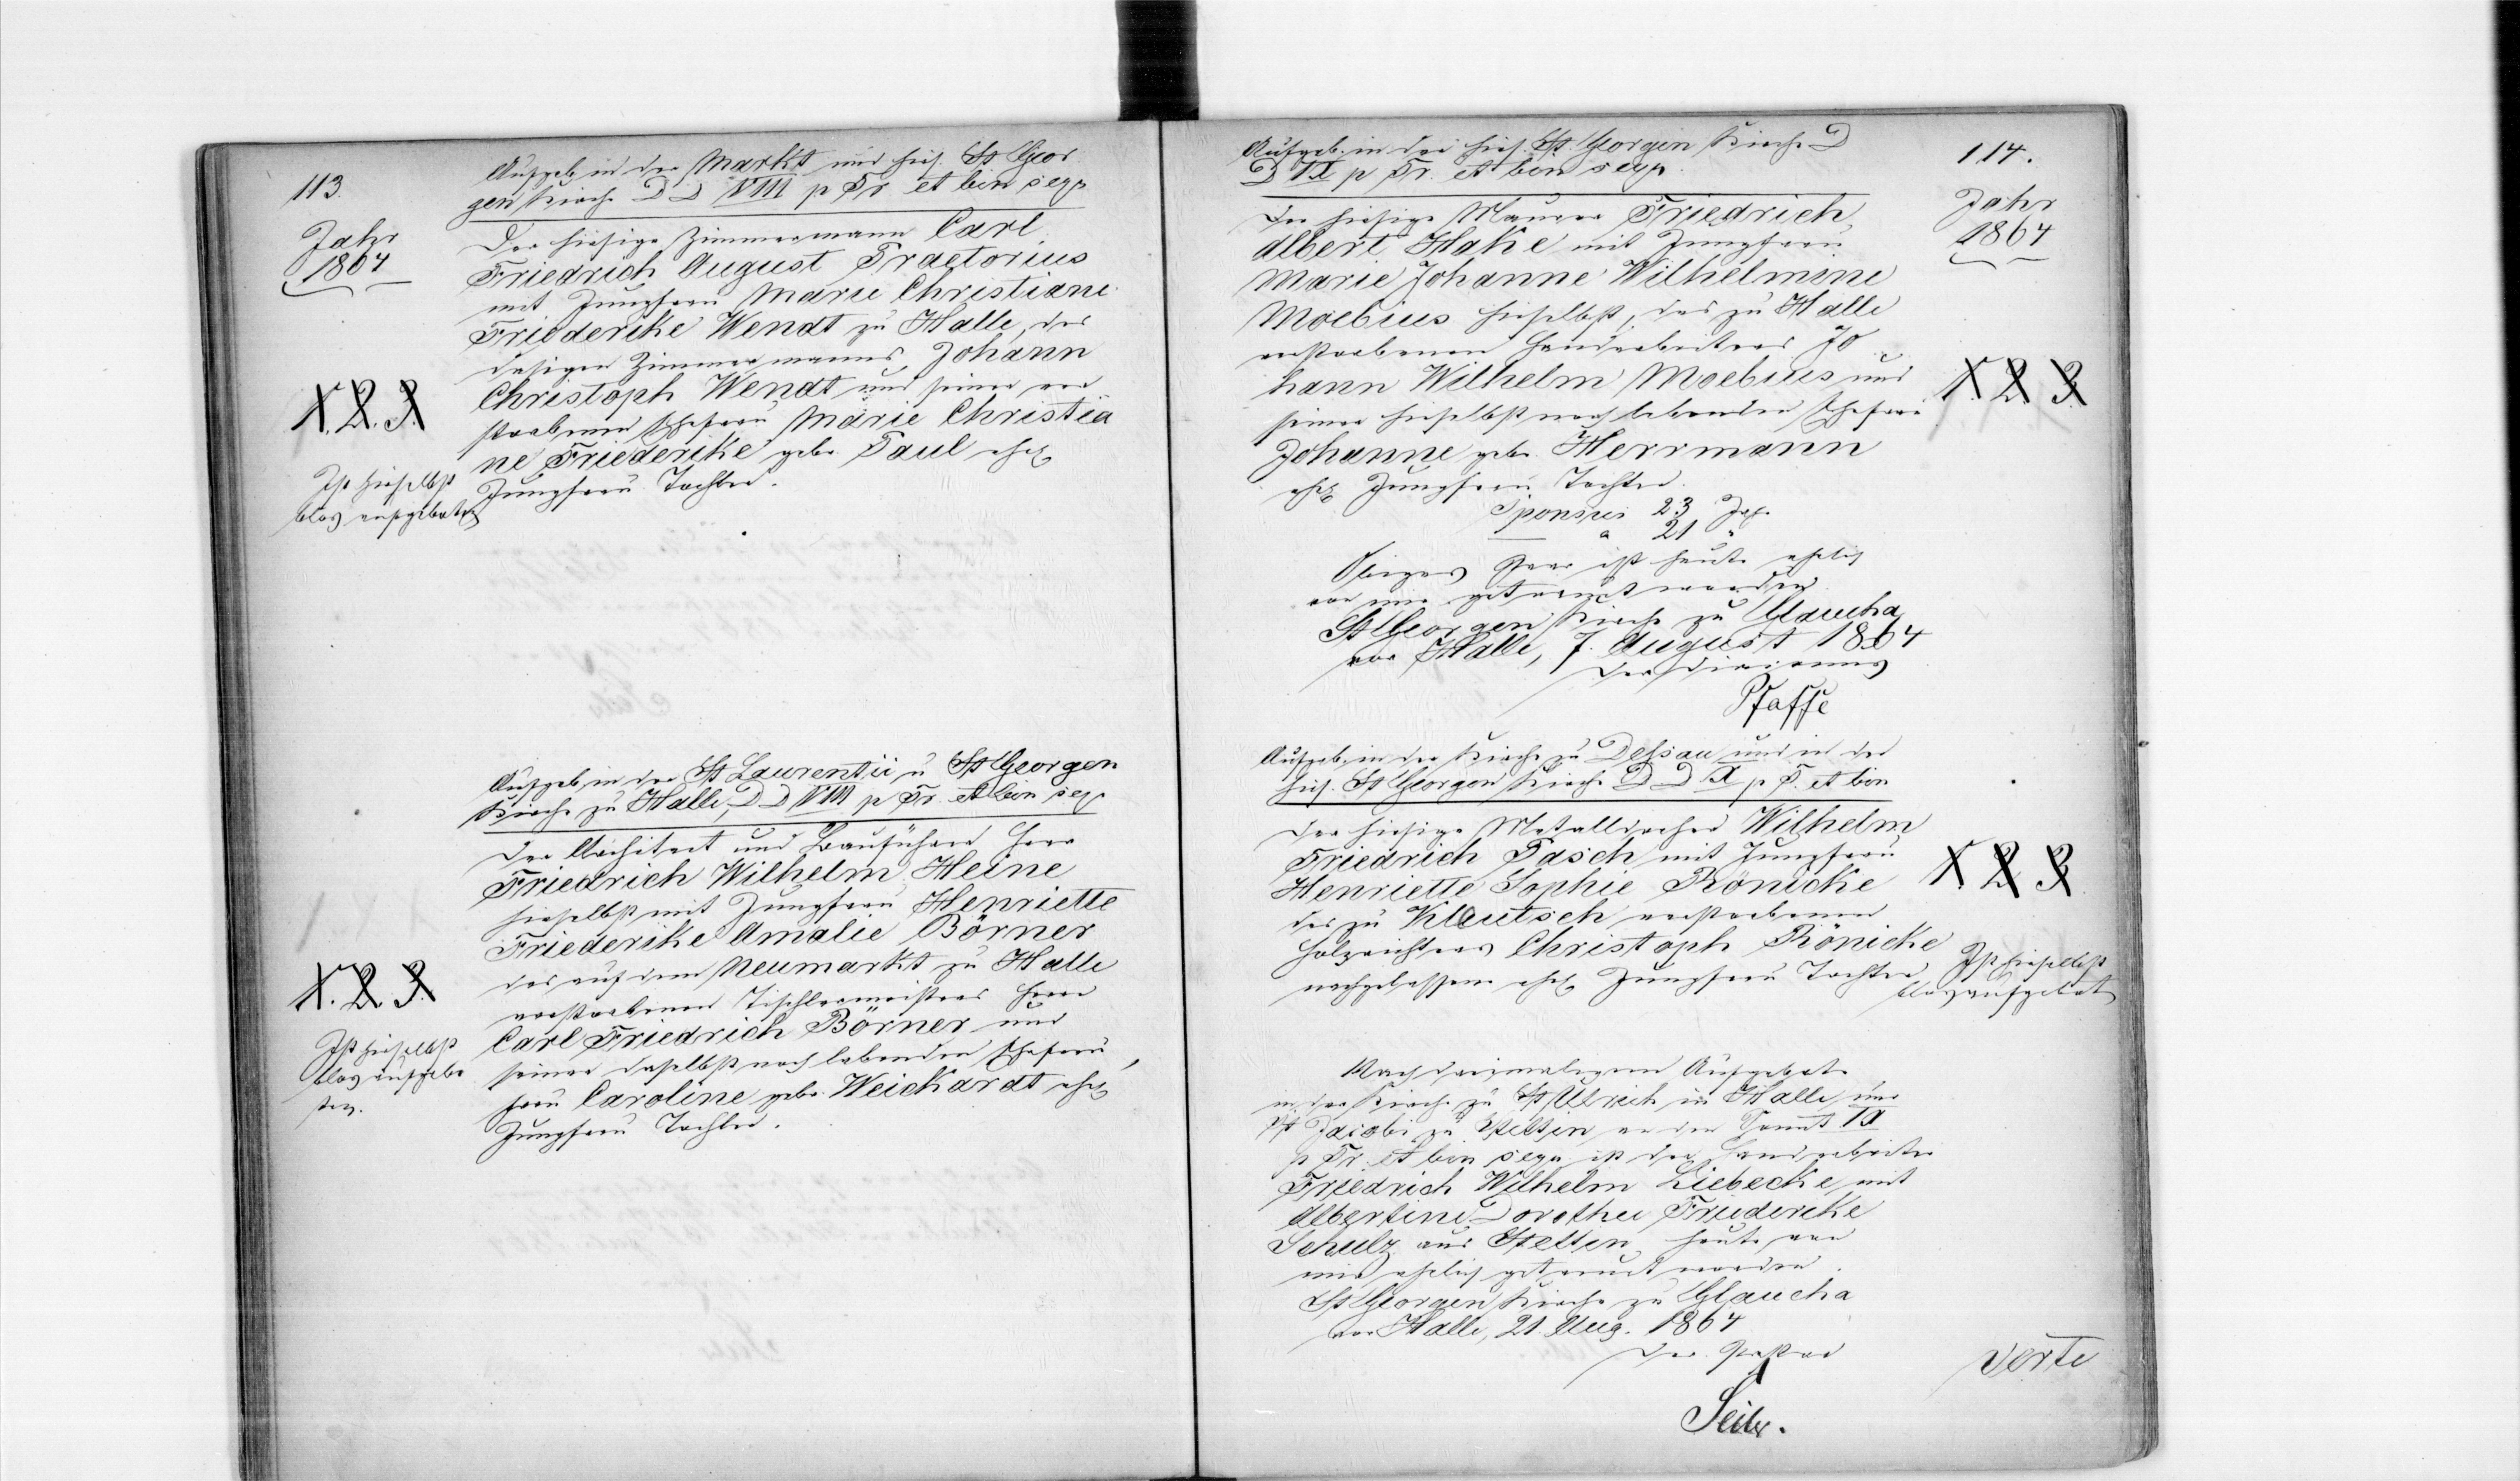 113.
Jahr
1864
Aufgeb. in der Markt und hies. St Geor
gen Kirche D D VIII p Tr. et bin seqq
Der hiesige Zimmermann Carl
Friedrich August Praetorius
mit Jungfrau Marie Christiane
Friederike Wendt zu Halle, des
dasigen Zimmermanns Johann
Christoph Wendt und seiner ver
storbenen Ehefrau Marie Christia
ne Friederike geb. Paul ehel
Jungfrau Tochter.
1. 2. 3.
Ist hieselbst
blos aufgeboten
Aufgeb. in der St Laurentii u St Georgen
Kirche zu Halle, D D VIII p Tr. et bin seq.
Der Architect und Bauführer Herr
Friedrich Wilhelm Heine
hieselbst mit Jungfrau Henriette
Friederike Amalie Börner
des auf dem Neumarkt zu Halle
verstorbenen Tischlermeisters Herrn
Carl Friedrich Börner und
seiner daselbst noch lebenden Ehefrau,
Frau Caroline geb. Weickardt ehel
Jungfrau Tochter.
1. 2. 3.
Ist hieselbst
blos aufgebo
ten.
114.
Jahr
1864
Aufgeb. in der hies. St. Georgen Kirche D
D IX p Tr. et bin seqq.
Der hiesige Maurer Friedrich
Albert Hake mit Jungfrau
Marie Johanne Wilhelmine
Moebius hieselbst, des zu Halle
verstorbenen Handarbeiters Jo
hann Wilhelm Moebius und
seiner hieselbst noch lebenden Ehefrau
Johanne geb. Herrmann
ehel Jungfrau Tochter.
1. 2. 3.
Sponsus 23 Jah.
a 21 "
Obiges Paar ist heute ehelich
von mir getraut worden.
St Georgen Kirche zu Glaucha
vor Halle, 7. August 1864
Der Diaconus
Pfaffe
Aufgeb. in der Kirche zu Dessau und in der
hies. St Georgen Kirche D D X p T. et bin
Der hiesige Metalldreher Wilhelm
Friedrich Pasch mit Jungfrau
Henriette Sophie Rönicke
des zu Kleutsch verstorbenen
Holzrichters Christoph Rönicke
nachgelassene ehel Jungfrau Tochter
1. 2. 3.
Ist hieselbst
blos aufgeboten
Nach dreimaligem Aufgebote
in der Kirche zu St Ulrich in Halle und
St Jacobi zu Stettin an den Sonnt. IX
p Tr. et bin seqq. ist der Handarbeiter
Friedrich Wilhelm Liebecke mit
Albertine Dorothee Friedericke
Schulz aus Stettin heute von
mir ehelich getraut worden.
St Georgen Kirche zu Glaucha
vor Halle, 21. Aug. 1864
Der Pastor
Seiler.
Verte